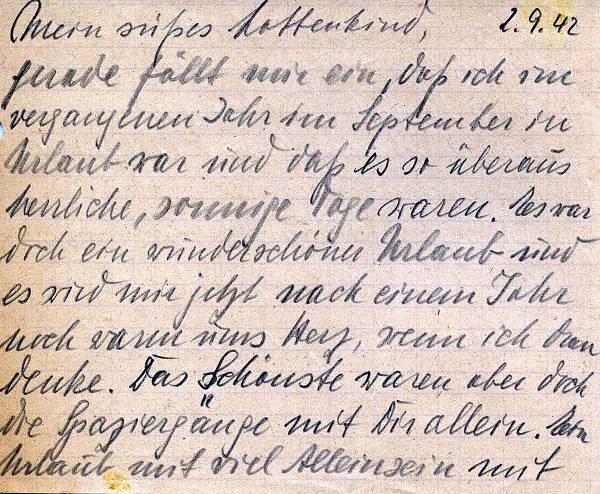 Mein süßes Lottenkind, 2.9.42
gerade fällt mir ein, daß ich im
vergangenen Jahr im September in
Urlaub war und daß es so überaus
herrliche, sonnige Tage waren. Es war
doch ein wunderschöner Urlaub und
es wird mir jetzt nach einem Jahr
noch warm ums Herz, wenn ich dran
denke. Das Schönste waren aber doch
die Spaziergänge mit Dir allein.
Urlaub mit viel Alleinsein mit